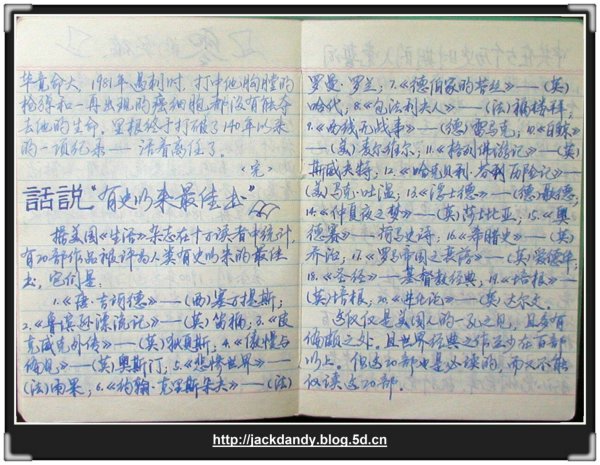 毕竟命大，1981年遇刺时，打中他胸膛的
枪弹和一再出现的癌细胞都没有能夺
去他的生命。里根终于打破了140年以来
的一项纪录——活着离任了。
〈完〉
話説“有史以来最佳书”
据美国《生活》杂志在十万读者中统计，
有20部作品被评为人类有史以来的最佳
书，它们是：
1.《唐·吉诃德》——(西)塞万提斯；
2.《鲁滨孙漂流记》——(英)笛福；3.《匹
克威克外传》——(英)狄更斯；4.《傲慢与
偏见》——(英)奥斯汀；5.《悲惨世界》——
(法)雨果；6.《约翰·克里斯朵夫》——(法)
罗曼·罗兰；7.《德伯家的苔丝》——(英)
哈代；8.《包法利夫人》——(法)福楼拜；
9.《西线无战事》——(德)雷马克；10.《白鲸》
——(美)麦尔维尔；11.《格列佛游记》——(英)
斯威夫特；12.《哈克贝利·芬利历险记》——
(美)马克·吐温；13.《浮士德》——(德)歌德；
14.《仲夏夜之梦》——(英)莎士比亚；15.《奥
德赛》——荷马史诗；16.《希腊史》——(英)
乔治；17.《罗马帝国之衰落》——(英)爱德华；
18.《圣经》——基督教经典；19.《培根》——
(英)培根；20.《进化论》——(英)达尔文。
这仅仅是美国人的一孔之见，且多有
偏颇之处，且世界经典之作至少在百部
以上。但这20部也是必读的，而又不能
仅读这20部。
http://jackdandy.blog.5d.cn